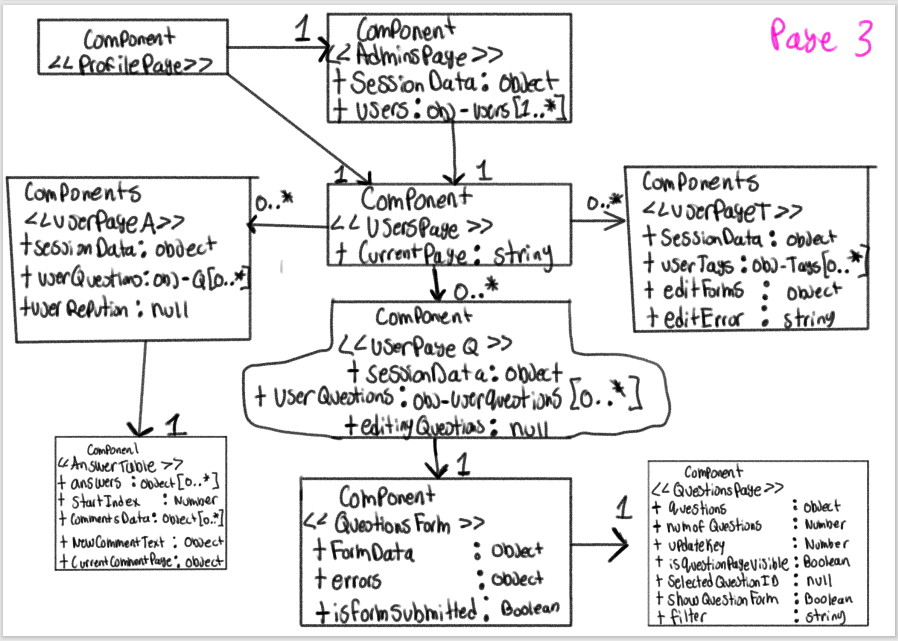 Page 3
Component
<<ProfilePage>>
1
Component
<<AdminsPage>>
+ SessionData: object
+ users: obj-users[1..*]
1
1
Component
<<UsersPage>>
+ CurrentPage: string
0..*
0..*
0..*
Components
<<UserPageA>>
+sessionData: object
+userQuestions:obj-Q[0..*]
+userRepution: null
Components
<<UserPageT>>
+ SessionData: object
+ userTags: obj-Tags[0..*]
+ editForms : object
+ editError : string
Component
<<UserPage Q>>
+sessionData: object
+ UserQuestions: obj-userquestions[0..*]
+editingQuestions: null
1
Component
<<AnswerTable>>
+ answers : object[0..*]
+ StartIndex : Number
+ CommentsData: Object[0..*]
+ NewCommentText : Object
+ CurrentCommentPage: object
1
Component
<<QuestionsForm>>
+ FormData : Object
+ errors : object
+ isformsubmitted: Boolean
1
Component
<<QuestionsPage>>
+ questions : object
+ numofQuestions : Number
+ updateKey : Number
+ isquestionPageVisible: Boolean
+ SelectedQuestionID : null
+ ShowQuestionForm : Boolean
+ filter : string